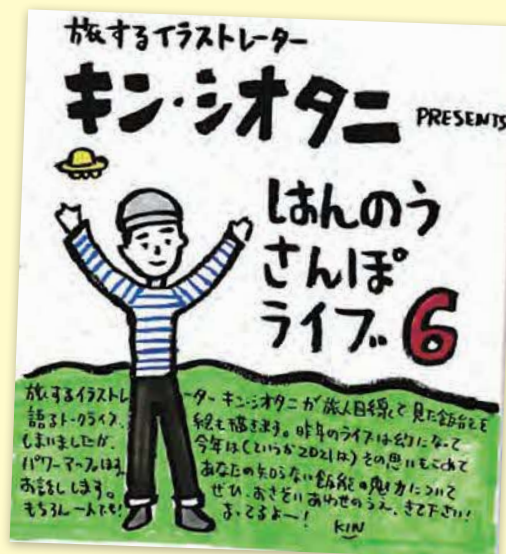 旅するイラストレーター
キン・シオタニ PRESENTS
はんのう
さんぽ
ライブ 6
旅するイラストレーター キン・シオタニが旅人目線で見た飯能を
語るトークライブ。絵も描きます。昨年のライブは幻になって
しまいましたが、今年は(というか2021は)その思いもこめて
パワーアップしたはんのう
お話しします。ぜひ、おさそいあわせのうえ、きて下さい!
もちろん一人でも! まってるよー!
KIN